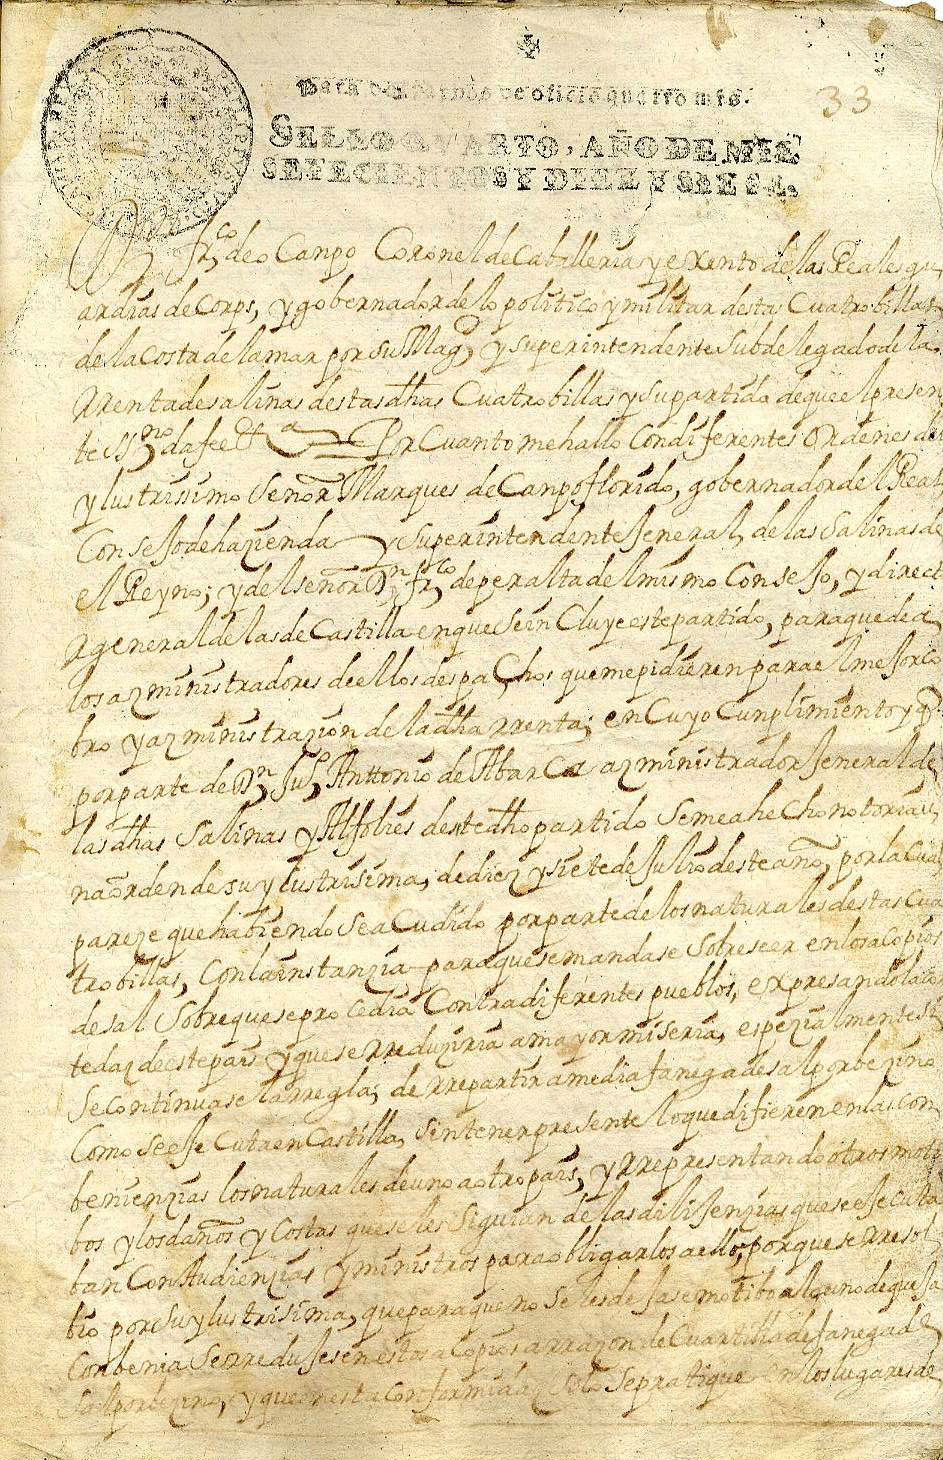 33
SELLO QVARTO, AÑO DE MIL
SETECIENTOS Y DIEZ Y SIETE.
Dn frco de o Canpo Coronel de Caballeria y exento de las Reales gu
ardias de Corps, y gobernador de lo politico y militar destas Cuatro billas
de la Costa de la mar por su Magd y superintendente Subdelegado de la
rrenta de salinas destas dhas Cuatro billas y su partido de que el presen
te ssno da fee Por Cuanto me hallo Con diferentes Ordenes del
ylustrissimo Señor Marques de Canpoflorido, gobernador del Real
Consejo de hazienda y superintendente Jeneral, de las Salinas de
el Reyno; y del señor Dn frco de peralta del mismo Consejo, y direct
r general de las de Castilla en que se in Cluye este partido, para que de a
los azministradores de ellos despachos que me pidieren para el mejor Co
bro y azministrazion de la dha rrenta; en Cuyo Cunplimiento y
por parte de Dn Anttonio de Abarca azministrador Jeneral de
las dhas Salinas y Alfolies deste dho partido Se me a he Cho notoria u,
na orden de su ylustrisima, de diez y siete de Julio deste año, por la Cual
pareze que habiendo Se a Cudido por parte de los naturales destas Cua
tro billas, Con la instanzia para que se mandase Sobreseer en los acopios
de sal Sobre que se pro Cedia Contra diferentes pueblos, expresando la cor
tedaz de este pais y que se rreduziria a mayor miseria, espezialmente si
se continuase la rregla; de rrepartir a media fanega de sal por bezino
Como se eje Cuta en Castilla, sin tener presente lo que difieren en las con
benienzias los naturales de uno a otro pais, y rrepresentando otros moti
bos y los daños y Costas que se les Siguian de las dilijenzias que se eje Cuta
ban Con Audienzias y ministros para obligarlos a ello; porque se rresol
bio por su ylustrisima, que para que no se les dejase motibo alguno de queja
Conbenia Se rredujesen estos acopios a rrazon de Cuartilla de fanega de
Sal por bezino, y que en esta Conformidad Se pratique en los lugares de